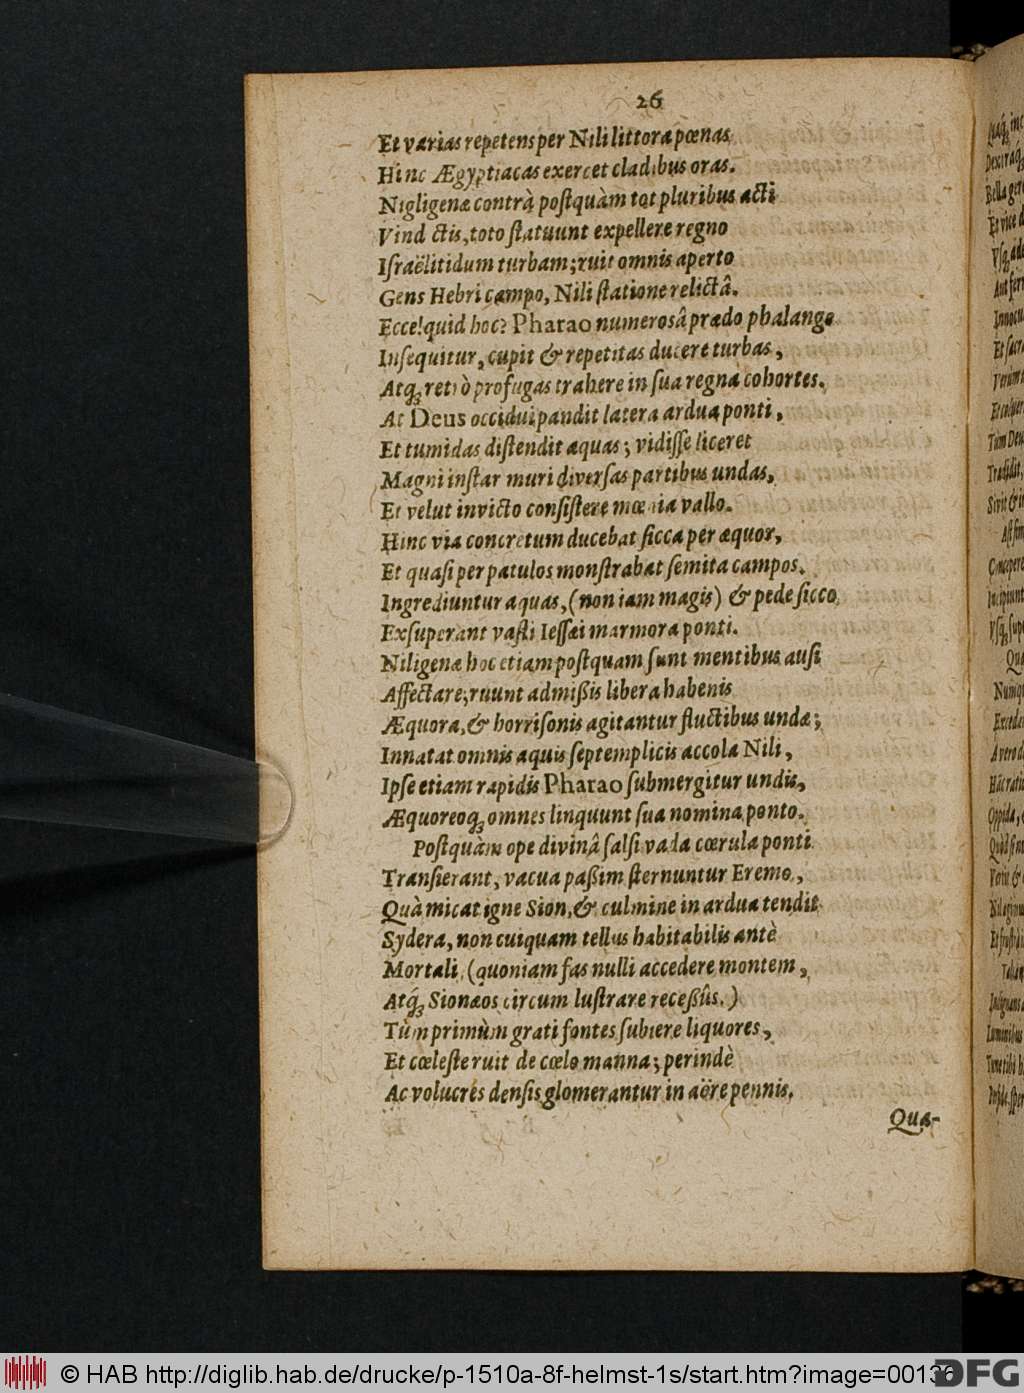 26
Et varias repetens per Nili littora pœnas
Hinc Ægyptiacas exercet cladibus oras.
Nigligenæ contrà postquàm tot pluribus acti
Vind ctis, toto statuunt expellere regno
Israëlitidum turbam; ruit omnis aperto
Gens Hebri campo, Nili statione relictâ.
Ecce! quid hoc? Pharao numerosâ prædo phalange
Insequitur, cupit & repetitas ducere turbas,
Atq́; retrò profugas trahere in sua regna cohortes.
At Deus occidui pandit latera ardua ponti,
Et tumidas distendit aquas; vidisse liceret
Magni instar muri diversas partibus undas,
Et velut invicto consistere mœnia vallo.
Hinc via concretum ducebat sicca per æquor,
Et quasi per patulos monstrabat semita campos.
Ingrediuntur aquas, (non iam magis) & pede sicco
Exsuperant vasti Iessæi marmora ponti.
Niligenæ hoc etiam postquam sunt mentibus ausi
Affectare; ruunt admißis libera habenis
Æquora, & horrisonis agitantur fluctibus undæ;
Innatat omnis aquis septemplicis accola Nili,
Ipse etiam rapidis Pharao submergitur undis,
Æquoreoq́; omnes linquunt sua nomina ponto.
Postquàm ope divinâ salsi vada cœrula ponti
Transierant, vacua paßim sternuntur Eremo,
Quà micat igne Sion, & culmine in ardua tendit
Sydera, non cuiquam tellus habitabilis antè
Mortali, (quoniam fas nulli accedere montem,
Atq́; Sionæos circum lustrare receßûs.)
Tùm primùm grati fontes subiere liquores,
Et cœleste ruit de cœlo manna; perindè
Ac volucres densis glomerantur in aëre pennis.
Qua-
© HAB http://diglib.hab.de/drucke/p-1510a-8f-helmst-1s/start.htm?image=00136
DFG